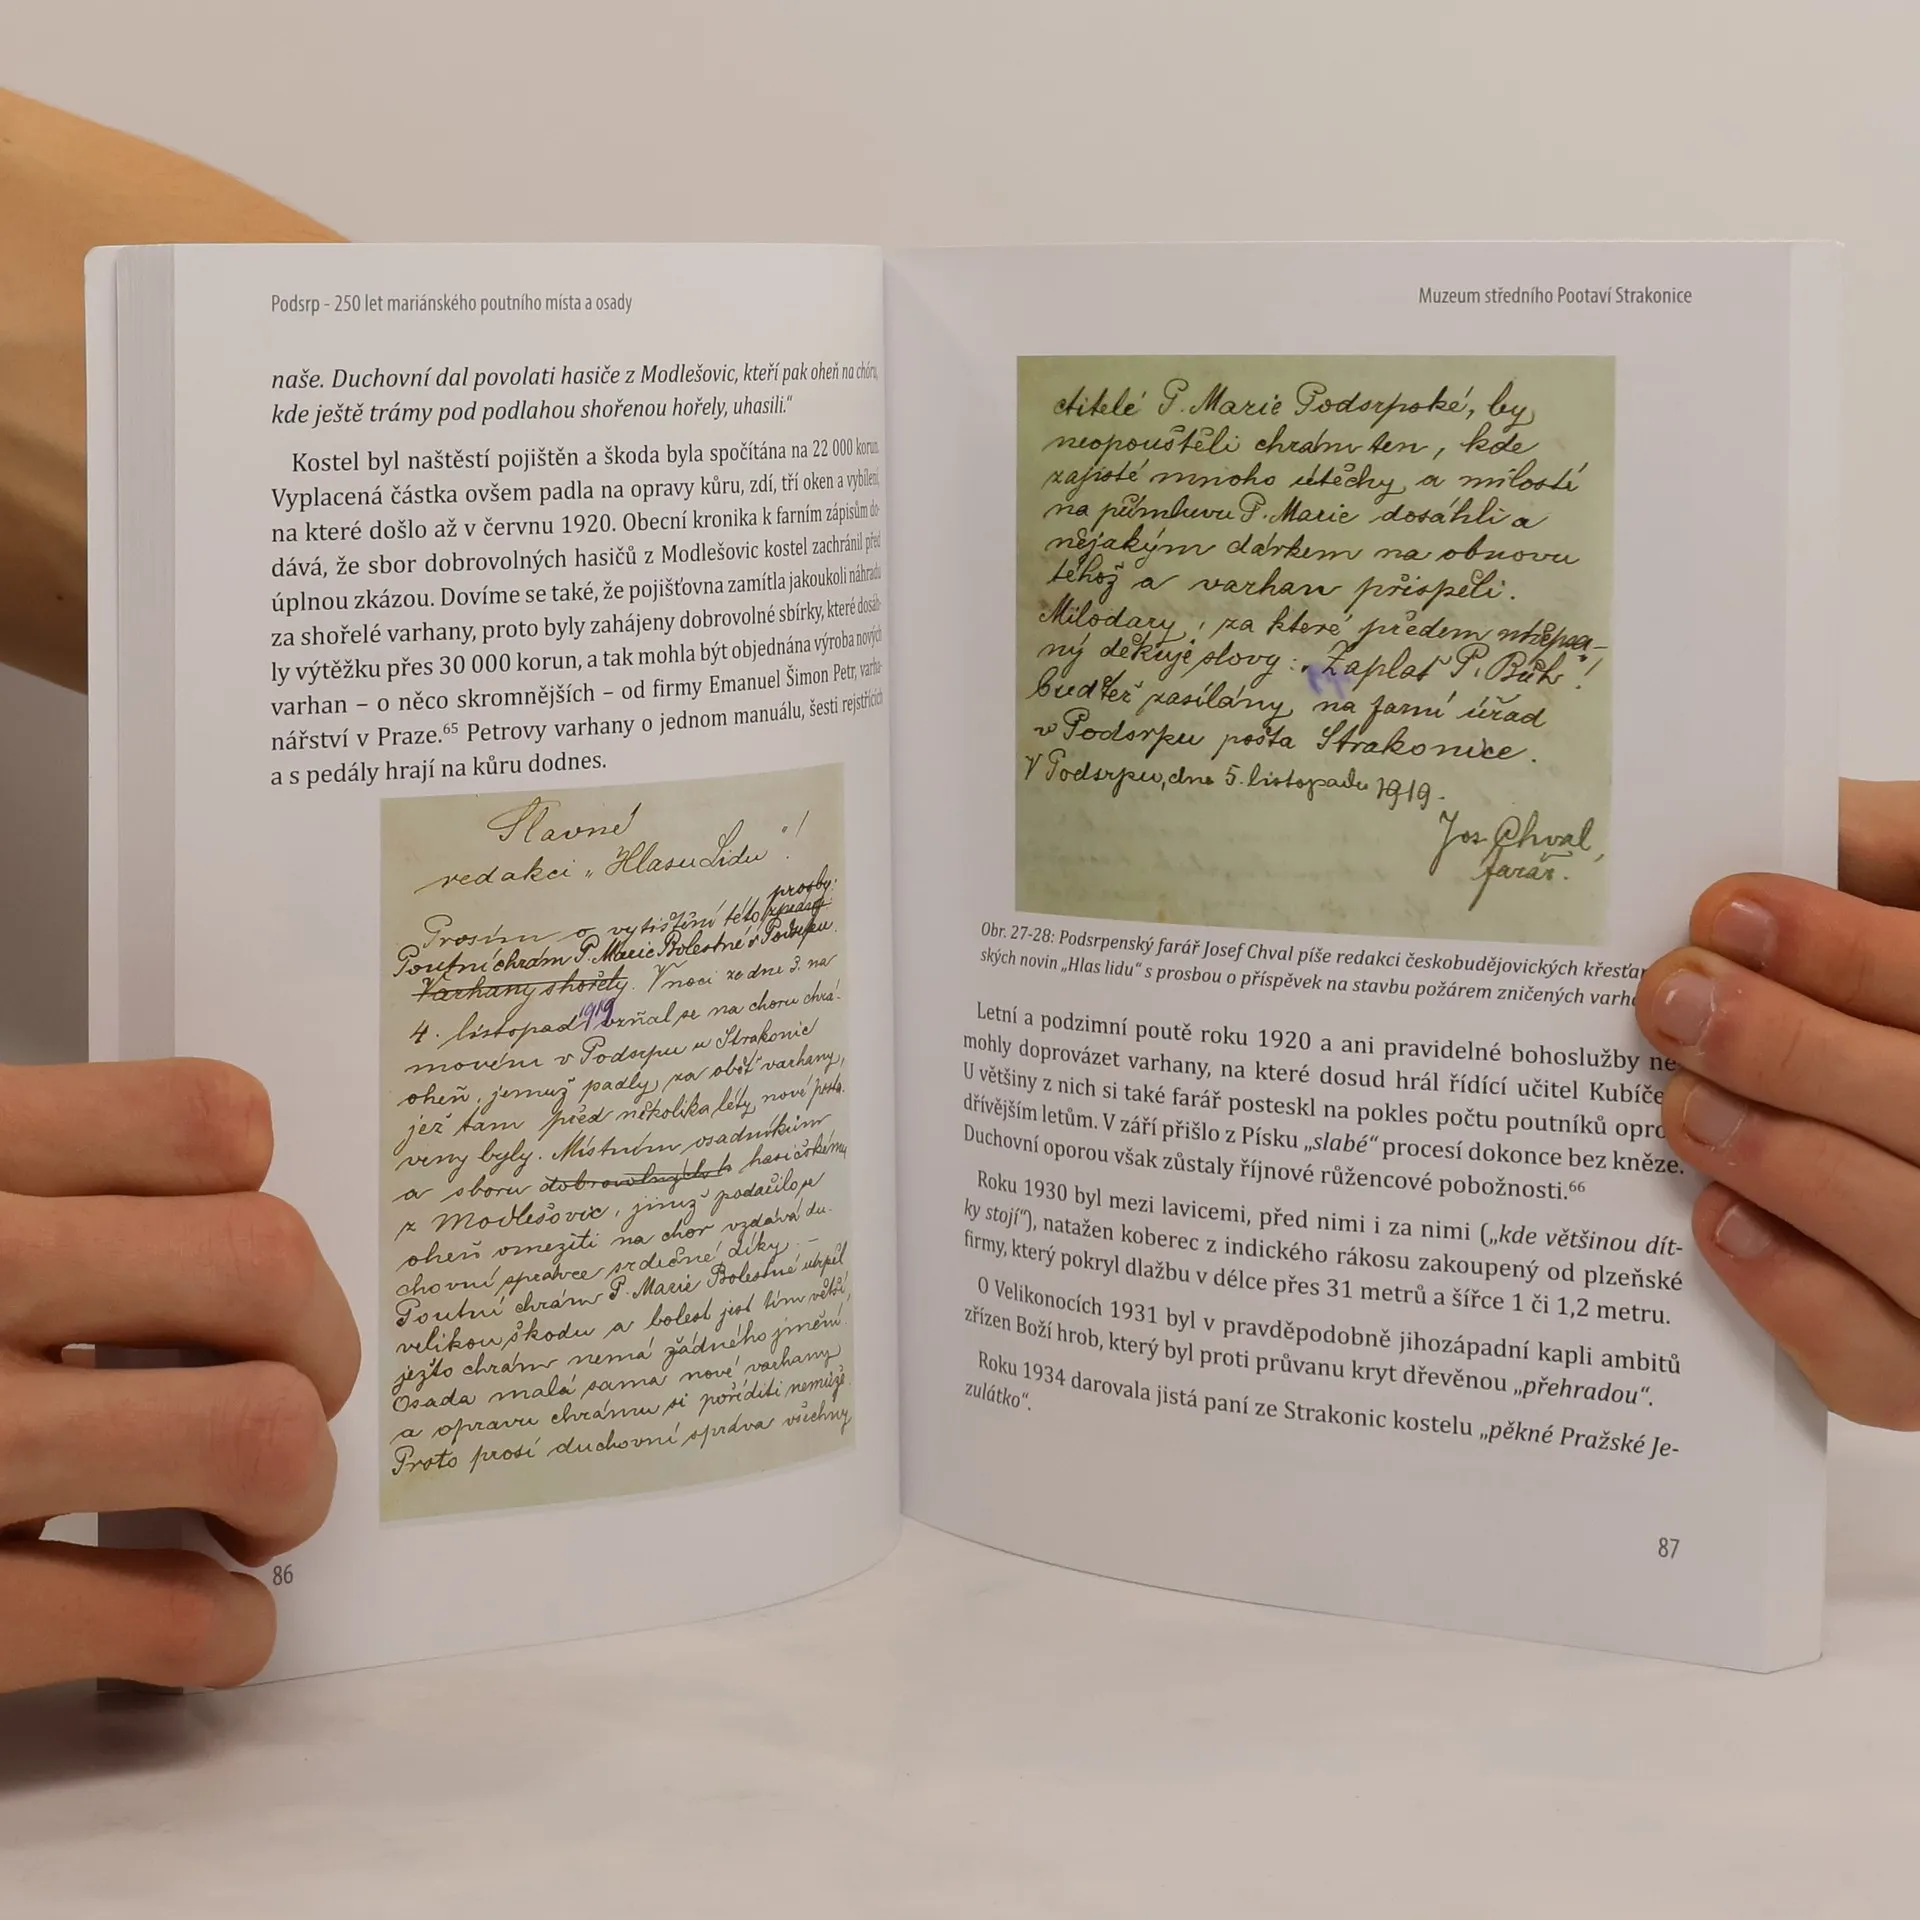 Podsrp - 250 let mariánského poutního místa a osady
naše. Duchovní dal povolati hasiče z Modlešovic, kteří pak oheň na chóru,
kde ještě trámy pod podlahou shořenou hořely, uhasili.“
Kostel byl naštěstí pojištěn a škoda byla spočítána na 22 000 korun.
Vyplacená částka ovšem padla na opravy kůru, zdí, tří oken a vybílení,
na které došlo až v červnu 1920. Obecní kronika k farním zápisům do-
dává, že sbor dobrovolných hasičů z Modlešovic kostel zachránil před
úplnou zkázou. Dovíme se také, že pojišťovna zamítla jakoukoli náhradu
za shořelé varhany, proto byly zahájeny dobrovolné sbírky, které dosáh-
ly výtěžku přes 30 000 korun, a tak mohla být objednána výroba nových
varhan – o něco skromnějších – od firmy Emanuel Šimon Petr, varha-
nářství v Praze.⁶⁵ Petrovy varhany o jednom manuálu, šesti rejstřících
a s pedály hrají na kůru dodnes.
Slavné
redakci „Hlasu Lidu“!
prosby:
Prosím o vytištění této
Poutní chrám P. Marie Bolestné v Podsrpu.
Varhany shořely. V noci ze dne 3. na
4. listopad 1919 vzňal se na choru chrá-
movém v Podsrpu u Strakonic
oheň, jemuž padly za oběť varhany,
jež tam před několika léty nové posta-
veny byly. Místním osadníkům
a sboru dobrovolných hasičskému
z Modlešovic, jimž podařilo se
oheň omeziti na chor vzdává du-
chovní správce srdečné díky. –
Poutní chrám P. Marie Bolestné utrpěl
velikou škodu a bolest jest tím větší,
ježto chrám nemá žádného jmění.
Osada malá sama nové varhany
a opravu chrámu si poříditi nemůže.
Proto prosí duchovní správa všechny
86
Muzeum středního Pootaví Strakonice
ctitelé P. Marie Podsrpské, by
neopouštěli chrám ten, kde
zajisté mnoho útěchy a milostí
na přímluvu P. Marie dosáhli a
nějakým dárkem na obnovu
téhož a varhan přispěli.
Milodary, za které předem
ný děkuje slovy: „Zaplať P. Bůh“!
buďtež zasílány na farní úřad
v Podsrpu pošta Strakonice.
V Podsrpu, dne 5. listopadu 1919.
Jos. Chval,
farář.
Obr. 27-28: Podsrpenský farář Josef Chval píše redakci českobudějovických křesťan
ských novin „Hlas lidu“ s prosbou o příspěvek na stavbu požárem zničených varha
Letní a podzimní poutě roku 1920 a ani pravidelné bohoslužby ne-
mohly doprovázet varhany, na které dosud hrál řídící učitel Kubíče
U většiny z nich si také farář posteskl na pokles počtu poutníků opro
dřívějším letům. V září přišlo z Písku „slabé“ procesí dokonce bez kněze.
Duchovní oporou však zůstaly říjnové růžencové pobožnosti.⁶⁶
Roku 1930 byl mezi lavicemi, před nimi i za nimi („kde většinou dít-
ky stojí“), natažen koberec z indického rákosu zakoupený od plzeňské
firmy, který pokryl dlažbu v délce přes 31 metrů a šířce 1 či 1,2 metru.
O Velikonocích 1931 byl v pravděpodobně jihozápadní kapli ambitů
zřízen Boží hrob, který byl proti průvanu kryt dřevěnou „přehradou“.
Roku 1934 darovala jistá paní ze Strakonic kostelu „pěkné Pražské Je-
zulátko“.
87